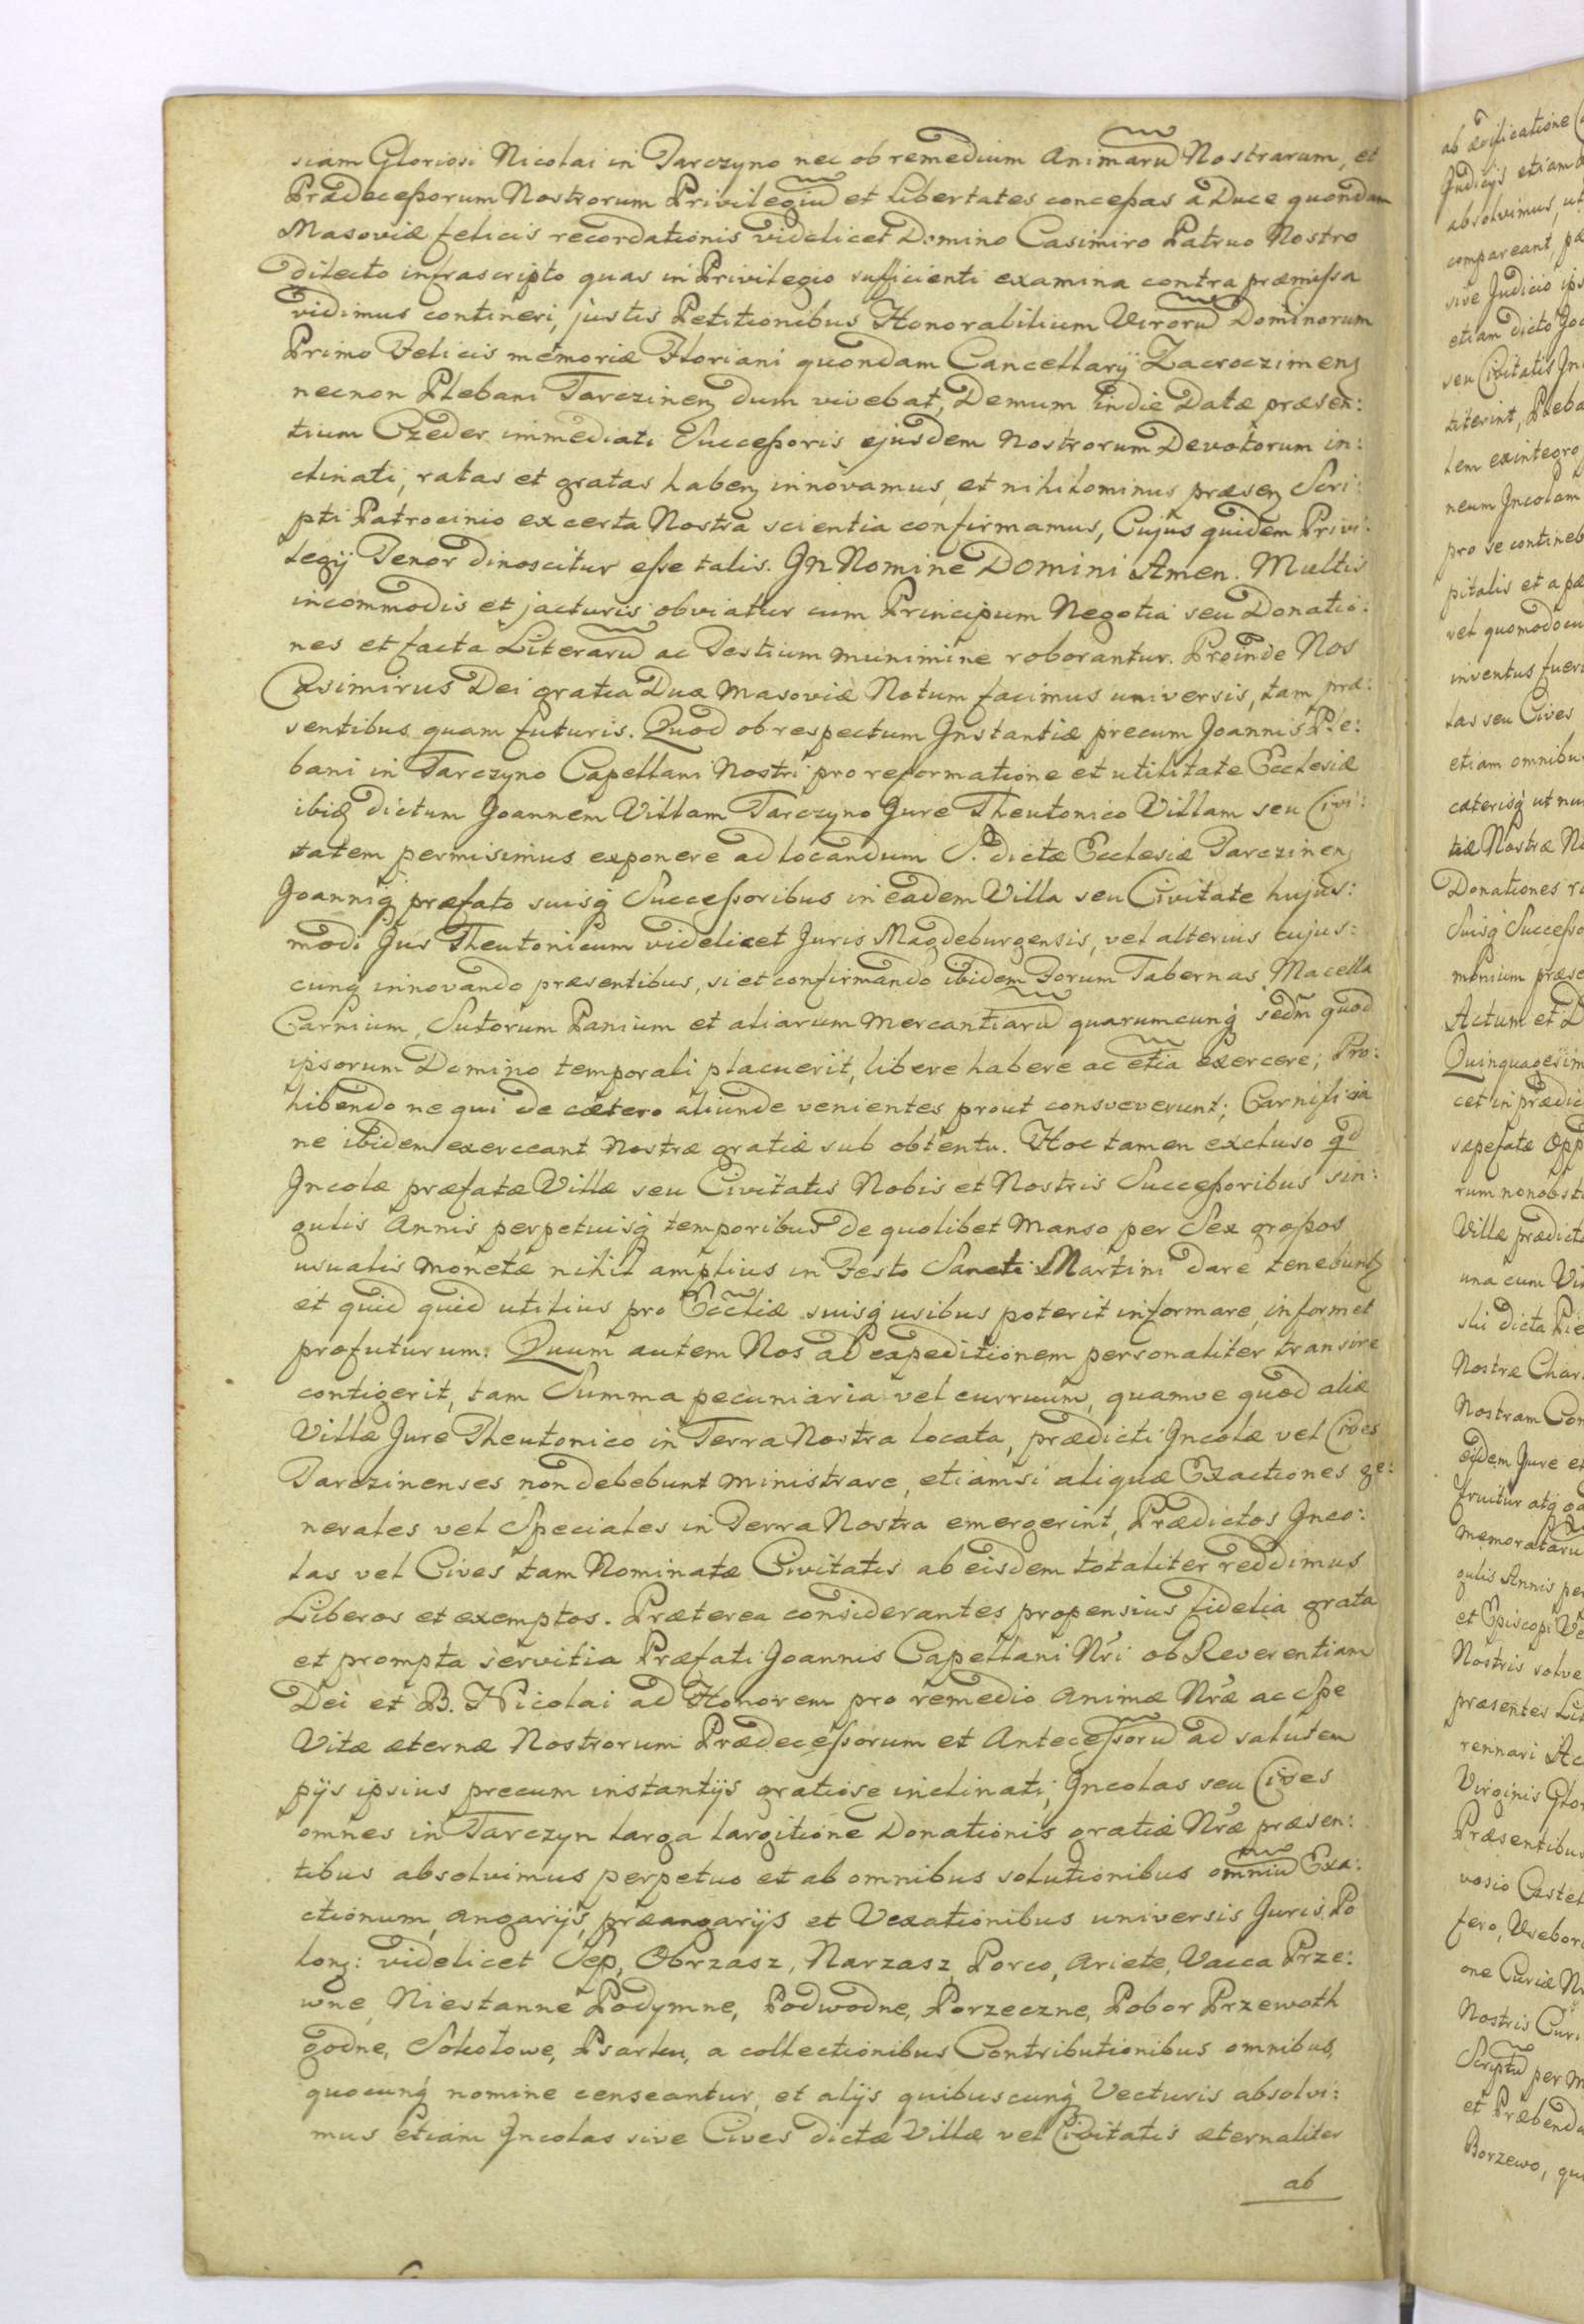 siam Gloriosi Nicolai in Tarczyno nec ob remedium Animarũ Nostrarum, et
Prædecessorum Nostrorum Privilegiũ et Libertates concessas à Duce quondam
Masoviæ felicis recordationis videlicet Domino Casimiro Patruo Nostro
Dilecto infrascripto quas in Privilegio sufficienti examina contra præmissa
vidimus contineri, justis Petitionibus Honorabilium Virorũ Dominorum
Primo Felicis memoriæ Floriani quondam Cancellarÿ Zacroczimenꝫ
necnon Plebani Tarczinenꝫ dum vivebat, Demum in die Datæ præsen:
tium Czeder immediati Successoris ejusdem Nostrorum Devotorum in:
clinati, ratas et gratas habenꝫ innovamus, et nihilominus præsenꝫ Scri:
pti Patrocinio ex certa Nostra scientia confirmamus, Cujus quidem Privi:
legÿ Tenor dinoscitur esse talis. In Nomine Domini Amen. Multis
incommodis et jacturis obviatur cum Principum Negotia seu Donatio:
nes et facta Literarũ ac Testium munimine roborantur. Proinde Nos
Casimirus Dei gratia Dux Masoviæ Notum facimus universis, tam præ:
sentibus quam futuris. Quod ob respectum Instantiæ precum Joannis Ple:
bani in Tarczyno Capellani Nostri pro reformatione et utilitate Ecclesiæ
ibiꝫ dictum Joannem Villam Tarczyno Jure Theutonico Villam seu Civi:
tatem permisimus exponere ad locandum S. dictæ Ecclesiæ Tarczinenꝫ
Joanniq́ præfato suisq́ Successoribus in eadem Villa seu Civitate hujus:
modi Jus Theutonicum videlicet Juris Magdeburgensis, vel alterius cujus:
cunq́ innovando præsentibus, si et confirmando ibidem Forum Tabernas Macella
Carnium, Sutorum Panium et aliarum Mercantiarũ quarumcunq́ sedm̃ quod
ipsorum Domino temporali placuerit, libere habere ac etiã exercere; Pro:
hibendo ne qui de cætero aliunde venientes prout consveverunt; Carnificia
ne ibidem exerceant Nostræ gratiæ sub obtentu. Hoc tamen excluso qd
Incolæ præfatæ Villæ seu Civitatis Nobis et Nostris Successoribus sin:
gulis Annis perpetuisq́ temporibus de quolibet Manso per Sex grossos
usualis Monetæ nihil amplius in Festo Sancti Martini dare tenebuntꝫ
et quid quid utilius pro Eccliæ suisq́ usibus poterit informare, informet
profuturum: Quum autem Nos ad expeditionem personaliter transire
contigerit, tam Summa pecuniaria vel curruum, quamve quod aliæ
Villæ Jure Theutonico in Terra Nostra locata, prædicti Incolæ vel Cives
Tarczinenses non debebunt ministrare, etiamsi aliquæ Exactiones ge:
nerales vel Speciales in Terra Nostra emergerint, Prædictos Inco:
las vel Cives tam Nominatæ Civitatis ab eisdem totaliter reddimus
Liberos et exemptos. Præterea considerantes propensius fidelia grata
et prompta servitia Præfati Joannis Capellani Nr̃i ob Reverentiam
Dei et B. Nicolai ad Honorem pro remedio Animæ Nr̃æ ac Spe
Vitæ æternæ Nostrorum Prædecessorum et Antecessorũ ad salutem
pÿs ipsius precum instantÿs gratiose inclinati, Incolas seu Cives
omnes in Tarczyn larga largitione Donationis gratiæ Nr̃æ præsen:
tibus absolvimus perpetuo et ab omnibus solutionibus omniũ Exa:
ctionum, angarÿs, præangarÿs et Vexationibus universis Juris Po
lonꝫ: videlicet Sep, Obrzasz, Narzasz, Porco, Ariete, Vacca Prze:
wne, Niestanne Podymne, Podwodne, Porzeczne, Pobor Przewoth
godne, Sokolowe, Psarku, a collectionibus Contributionibus omnibus,
quocunq́ nomine censeantur, et alÿs quibuscunq́ Vecturis absolvi:
mus etiam Incolas sive Cives dictæ Villæ vel Civitatis æternaliter
ab
ab ædificatione
Judicÿs etiam
absolvimus, ut
compareant,
sive Judicio
etiam dicto
seu Civitatis
titerint, Pleba
lem ex integro
neum Incolam
pro se contineb
pitalis et a
vel quomodocu
inventus fuer
las seu Cives
etiam omnibu
cæterisq́ ut nu
tiæ Nostræ
Donationes
Suisq́ Successo
monium præse
Actum et D
Quinquagesim
cet in prædic
sæpefatæ Opp
rum nonobst
Villæ prædict
una cum Vi
dicta
Nostræ Char
Nostram Con
ejdem Jure
fruitur atq́
memoratarũ
gulis Annis per
et Episcopi
Nostris solve
præsentes Lit
rennari
Virginis Glor
Præsentibus
Castel
fero,
one Curiæ
Nostris Curi
Scriptũ per
et Præbenda
Borzewo,